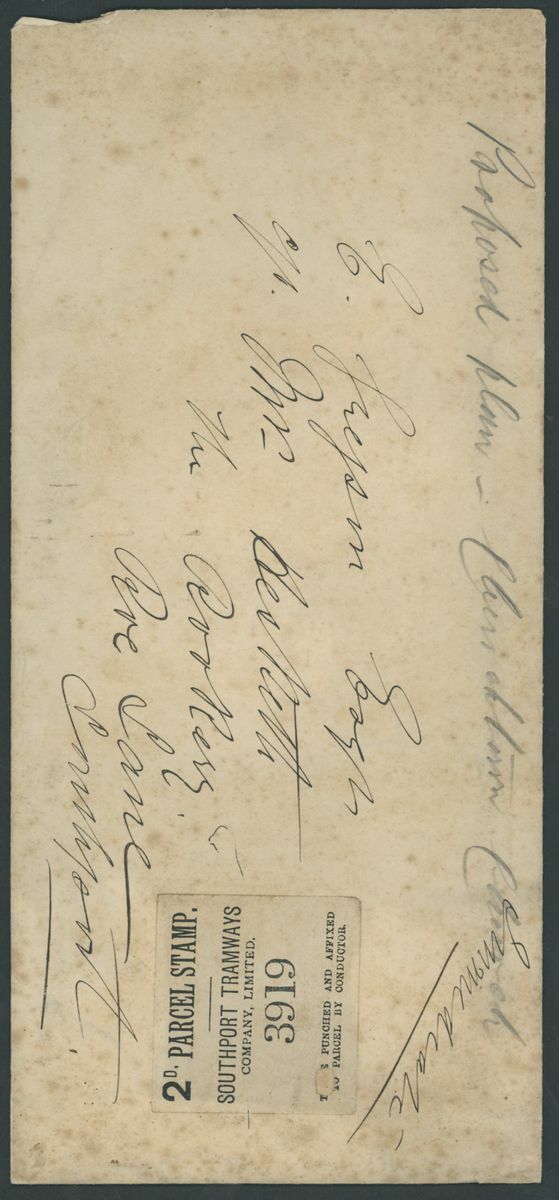 Proposed plan - Churchtown Church
Immediate
E. Gregson Esqr
of Mrs Hesketh
The Rookery
Roe Lane
Southport.
2D. PARCEL STAMP.
SOUTHPORT TRAMWAYS
COMPANY, LIMITED.
3919
PUNCHED AND AFFIXED
TO PARCEL BY CONDUCTOR.